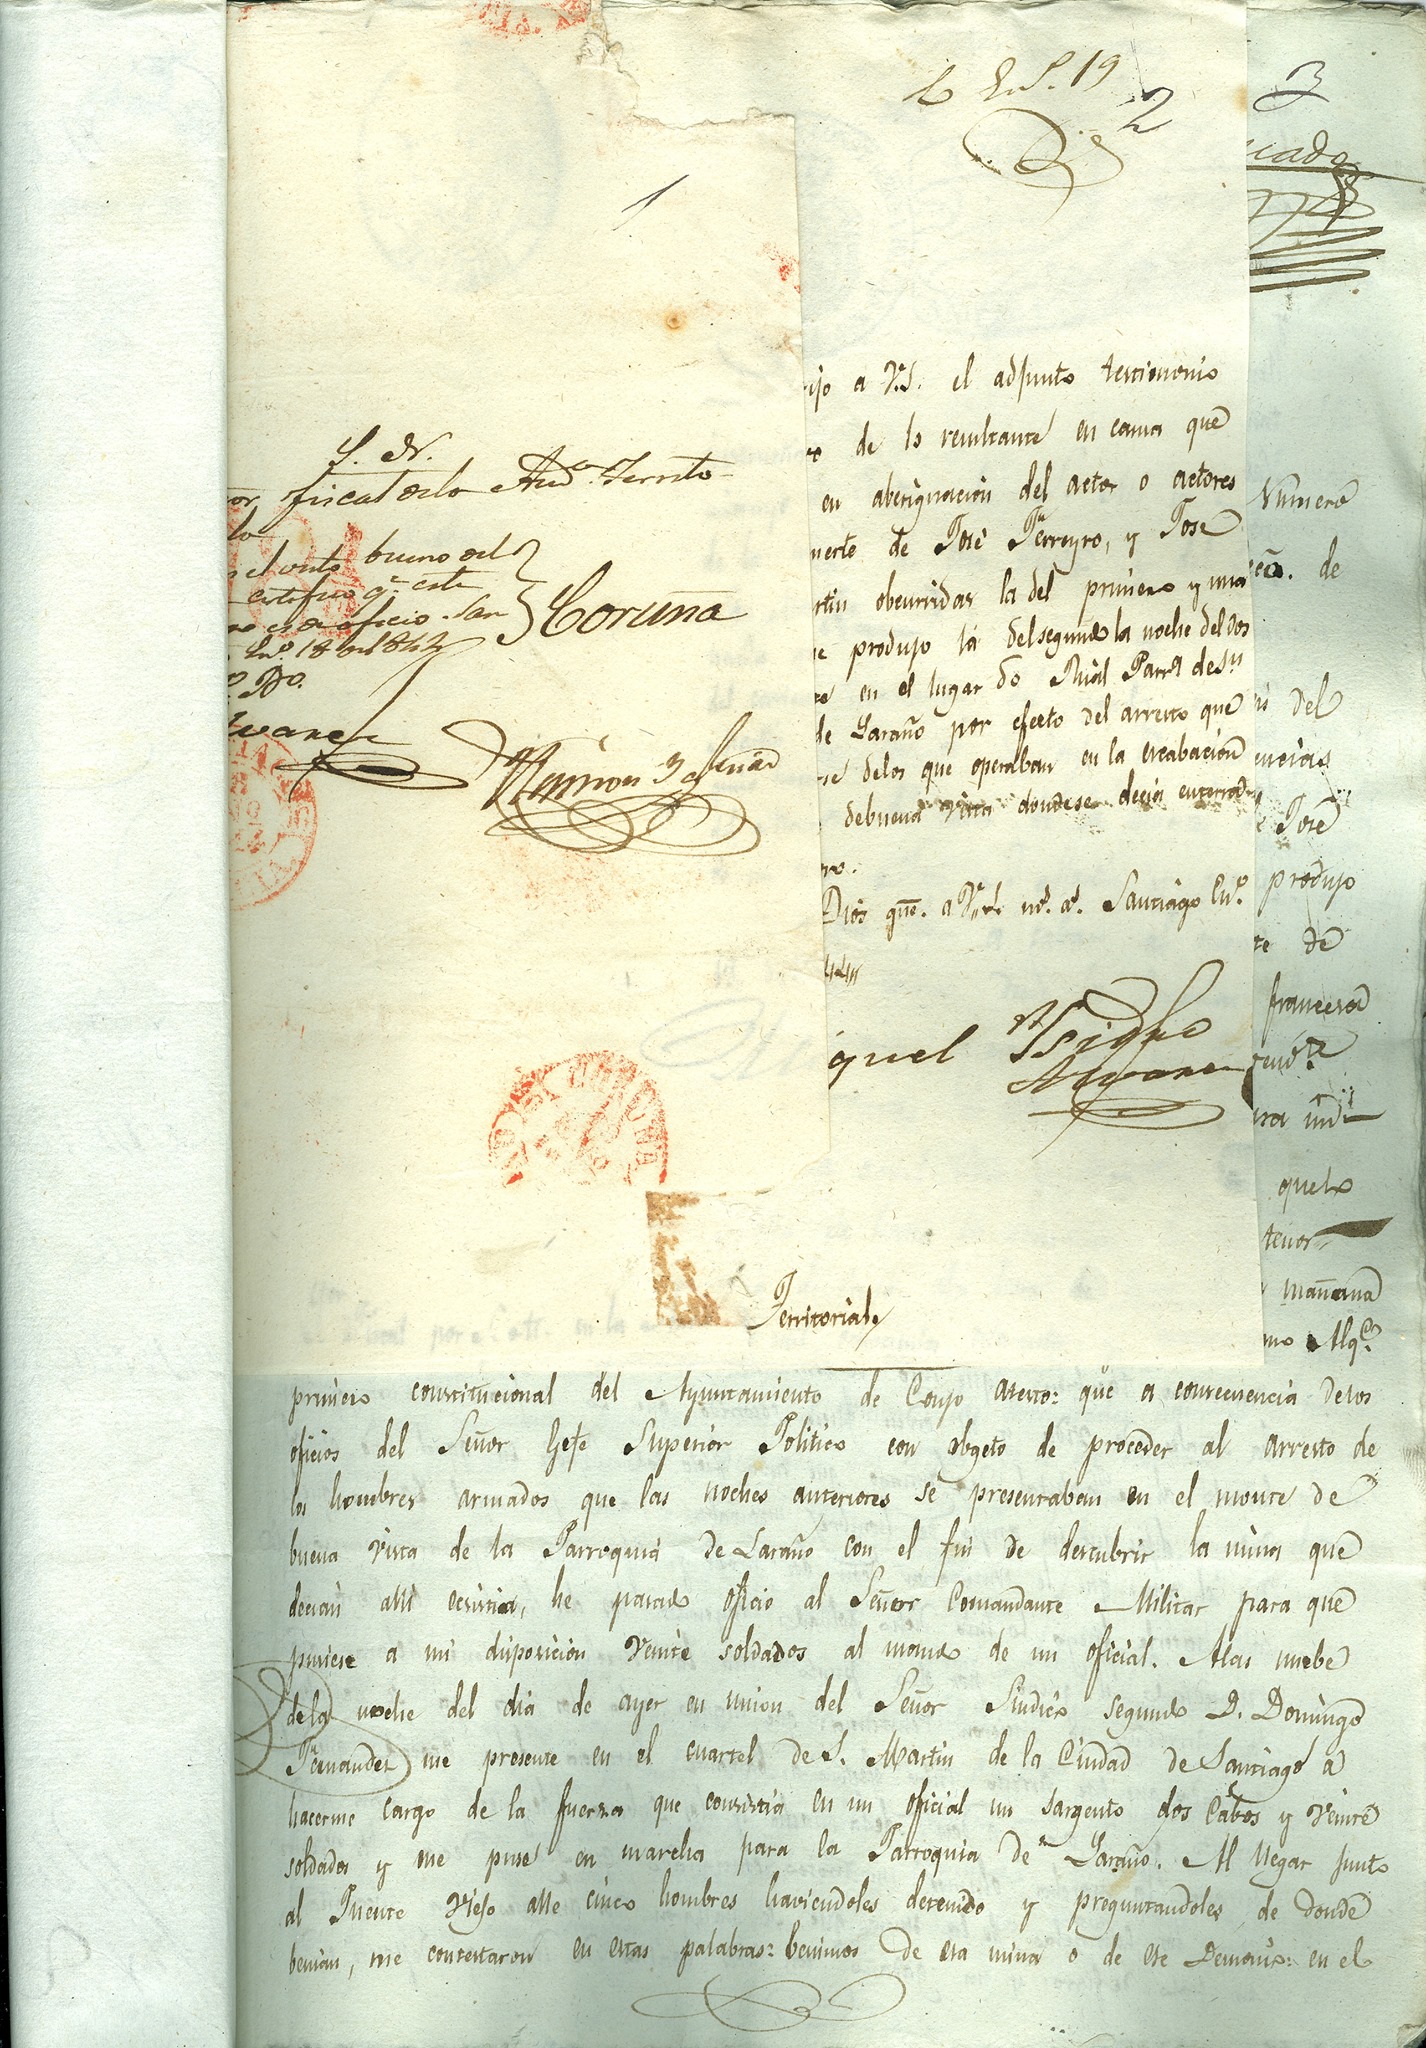 6 En.º 19
2
3
1
S. N.
or fiscal de la Aud.ª Territo
la
el visto bueno del
certifico q.e este
es de oficio. San
En.º 18 de 1842
Vº Bº
lvarez
Coruña
Ramon
ijo a V.S. el adjunto testimonio
de lo resultante en causa que
en aberiguacion del actor o actores
uerte de José Ferreyro, y José
rtin ocurridas la del primero y una
e produjo la del segundo la noche del dos
en el lugar do Rial Parr.ª de S.n
de Laraño por efecto del arresto que
se de los que operaban en la escabacion
de buena vista donde se decia enterrad
ro.
Dios gue. a V.S. m.s a.s Santiago En.º
guel Isidro
Alvarez
Territorial
Numero
de
del
encias
José
produjo
te de
francesa
que lo
tenor
mañana
mo Alq.e
primero constitucional del Ayuntamiento de Conjo atesto: que a consecuencia de los
oficios del Señor Gefe Superior Politico con obgeto de proceder al arresto de
los hombres armados que las noches anteriores se presentaban en el monte de
buena vista de la Parroquia de Laraño con el fin de descubrir la mina que
decian alli ecsistia, he pasado oficio al Señor Comandante Militar para que
pusiese a mi disposicion veinte soldados al mando de un oficial. A las nuebe
de la noche del dia de ayer en union del Señor Sindico segundo D. Domingo
Fernandez me presente en el cuartel de S. Martin de la Ciudad de Santiago a
hacerme cargo de la fuerza que consistia en un oficial un sargento dos Cabos y veinte
soldados y me puse en marcha para la Parroquia de Laraño. Al llegar junto
al Puente Viejo alle cinco hombres haviendoles detenido y preguntandoles de donde
benian, me contestaron en estas palabras: benimos de esa mina o de ese Demonio: en el